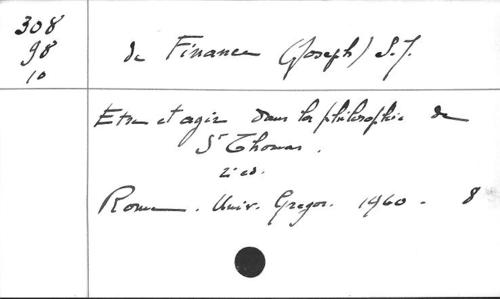 308
98
10
de Finance (Joseph) S.J.
Etre et agir dans la philosophie de
St Thomas.
2e ed.
Rome. Univ. Gregor. 1960. 8